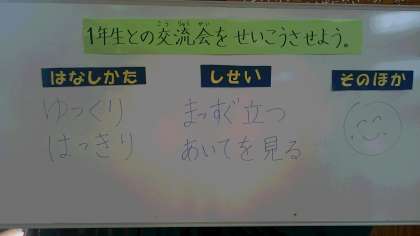 1年生との交流会をせいこうさせよう。
はなしかた
ゆっくり
はっきり
しせい
まっすぐ立つ
あいてを見る
そのほか